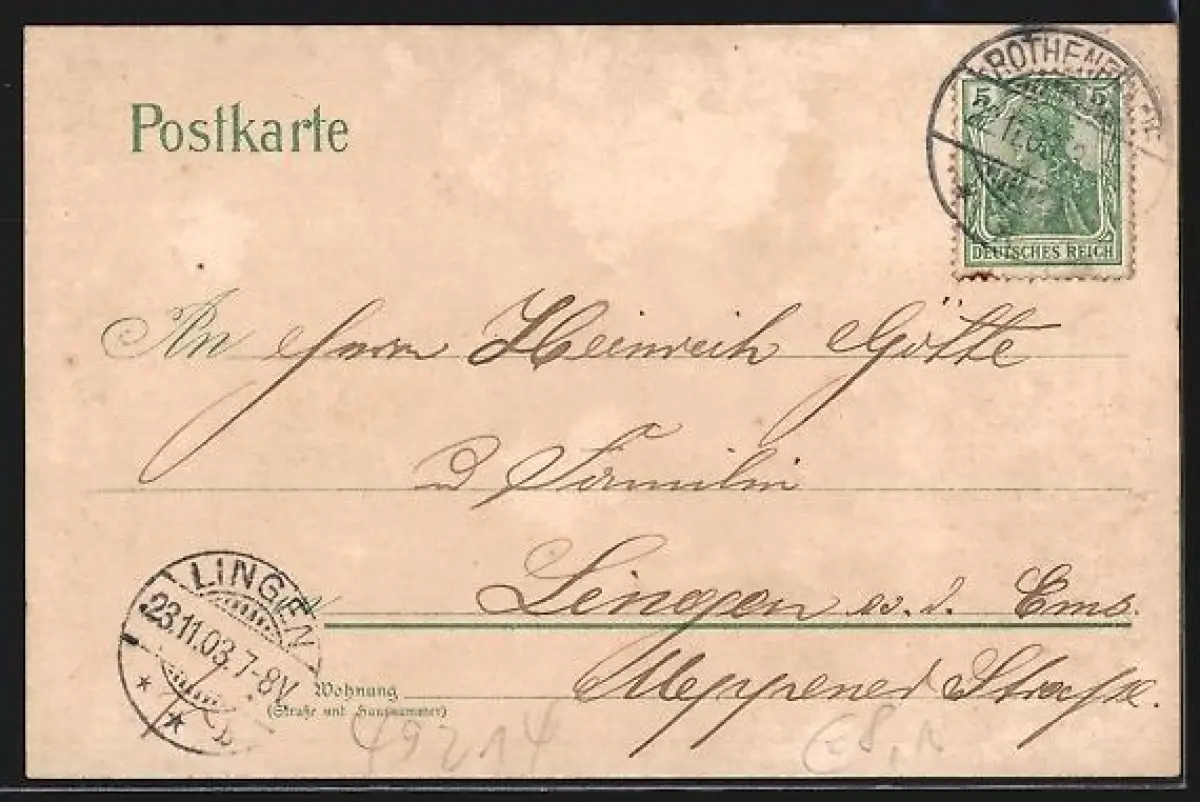 Postkarte
5 5
DEUTSCHES REICH
An Herrn Heinrich Götte
u Familie
Lingen a. d. Ems.
Meppener Straße.
Wohnung
(Straße und Hausnummer)
LINGEN
23.11.03. 7-8V
49214